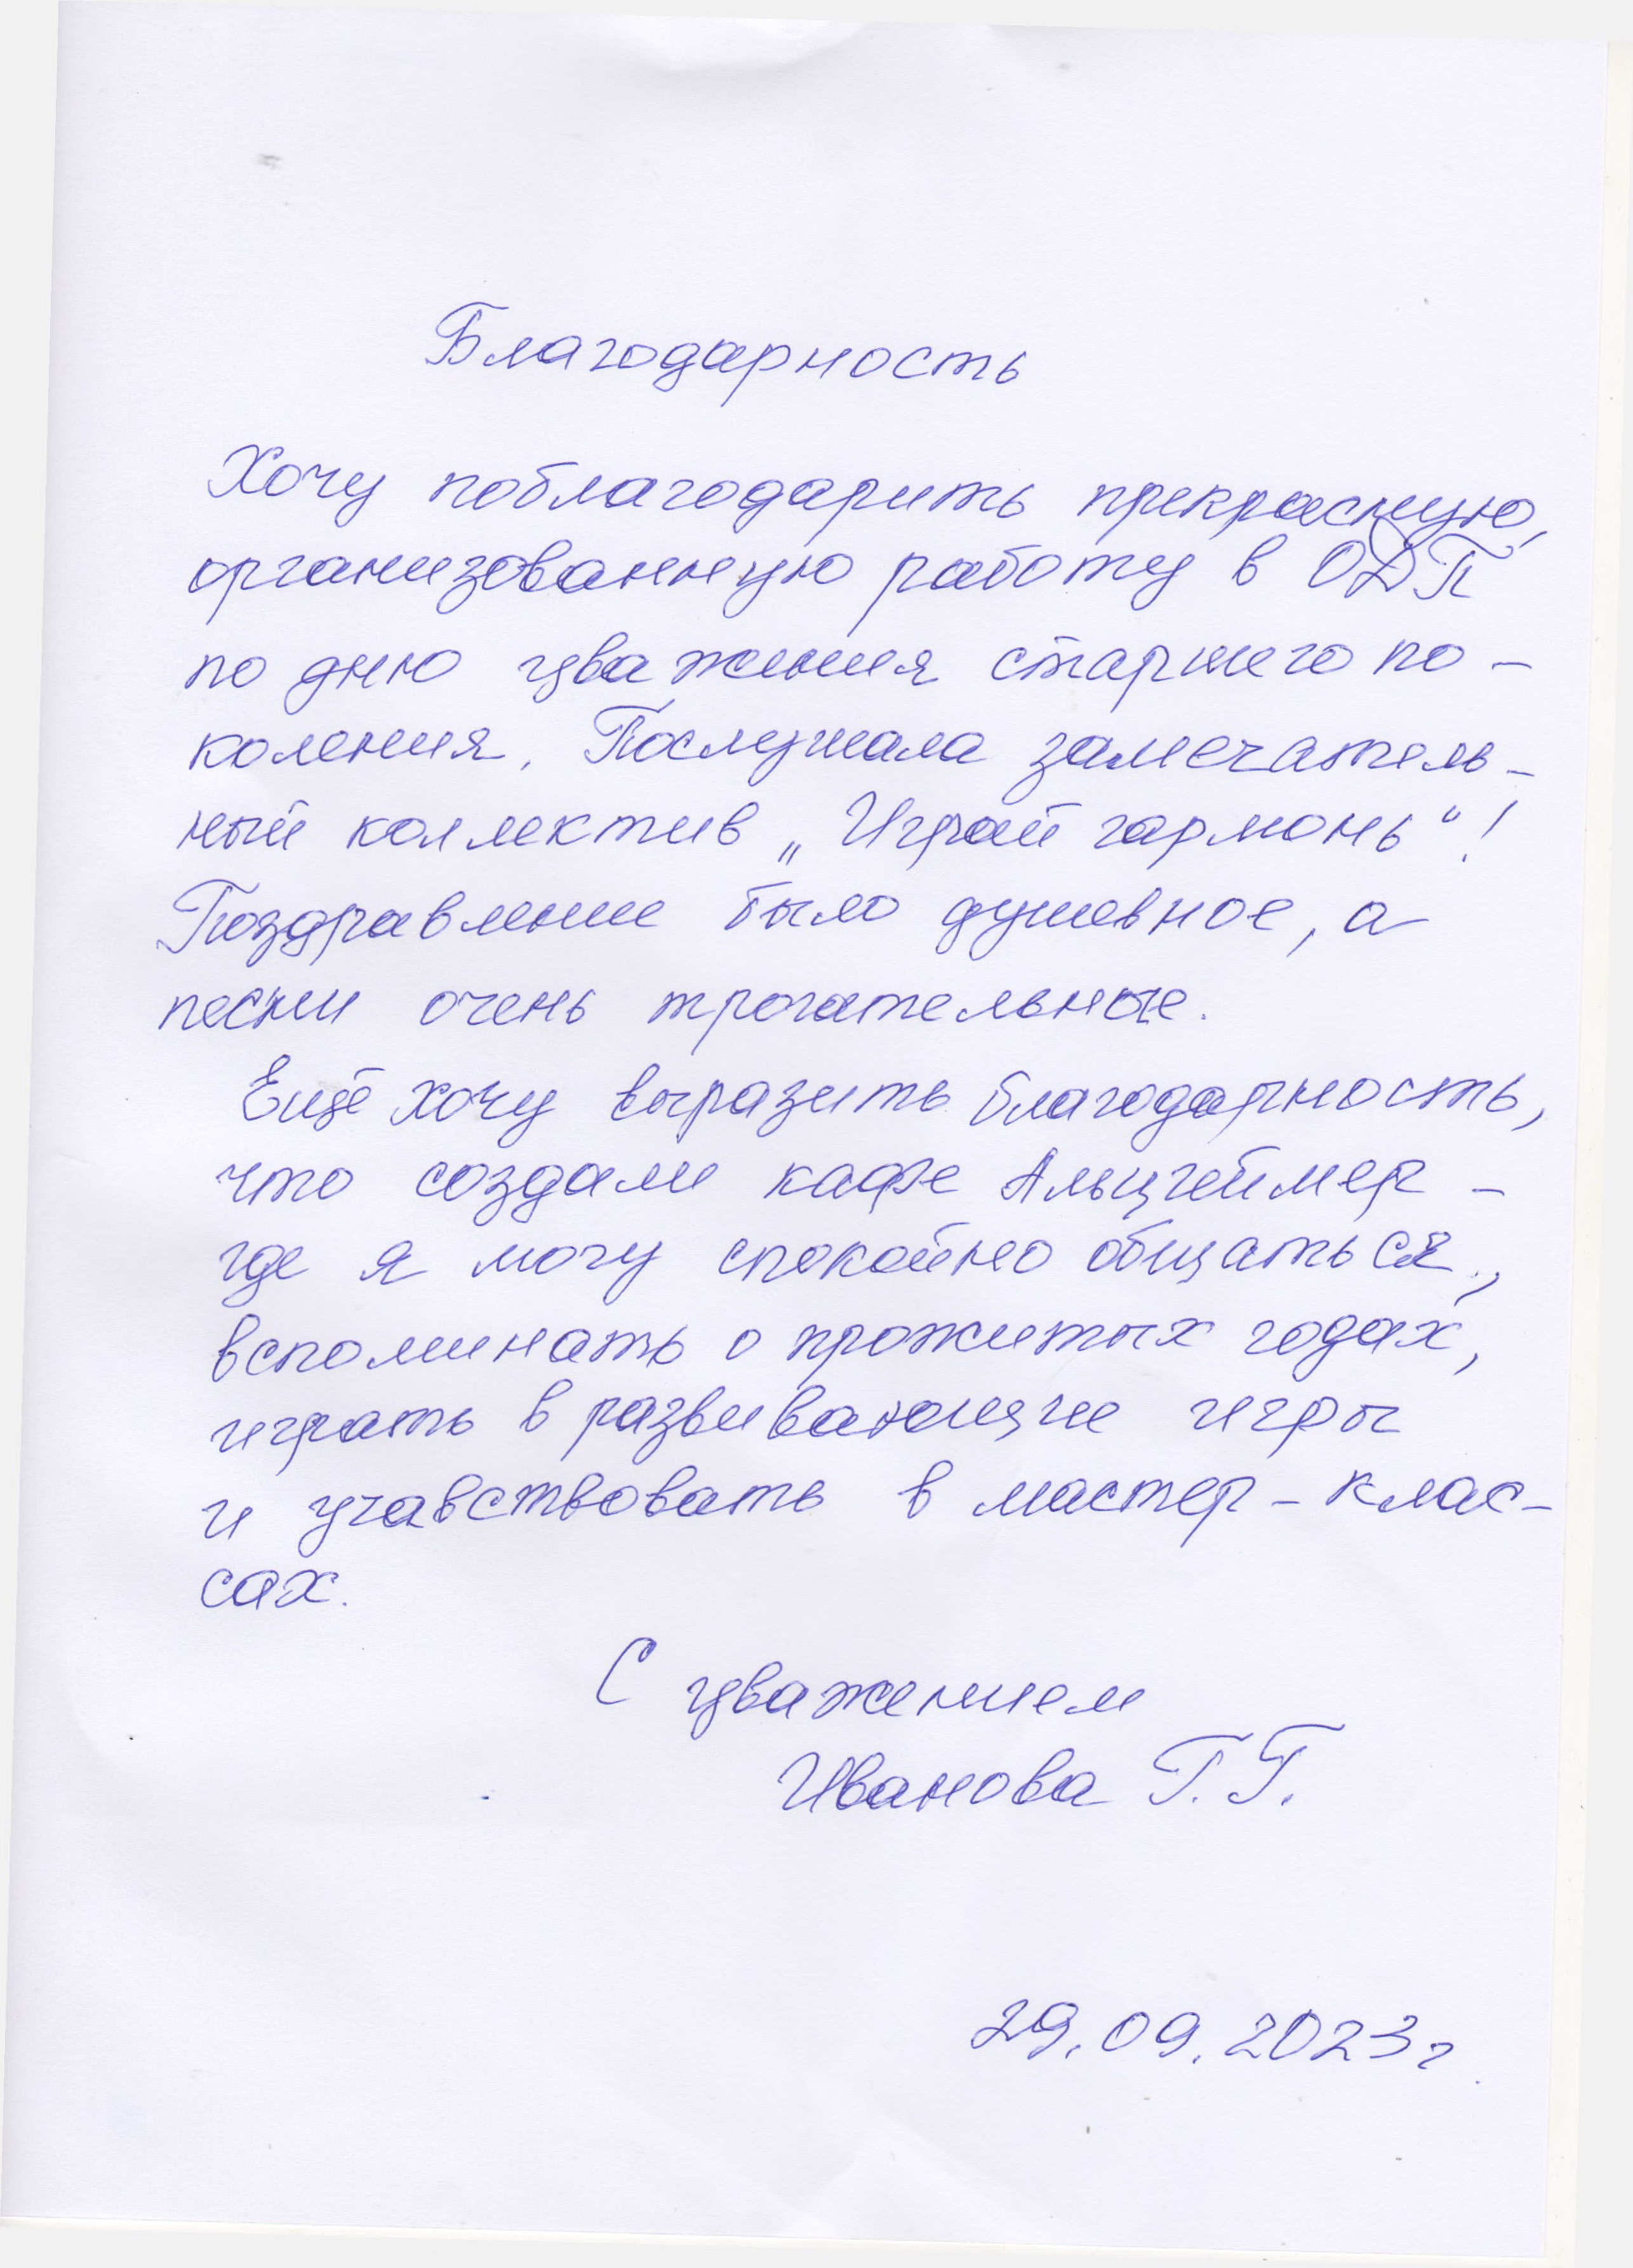 Благодарность
Хочу поблагодарить прекрасную,
организованную работу в ОДП
по дню уважения старшего по-
коления. Послушала замечатель-
ный коллектив „Играй гармонь“!
Поздравление было душевное, а
песни очень трогательные.
Ещё хочу выразить благодарность,
что создали кафе Альцгеймер -
где я могу спокойно общаться,
вспоминать о прожитых годах,
играть в развивающие игры
и учавствовать в мастер-клас-
сах.
С уважением
Иванова Г.Г.
29.09.2023г.